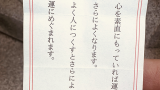 心を素直にもっていれば運
さらによくなります。
よく人につくすとさらによ
運にめぐまれます。